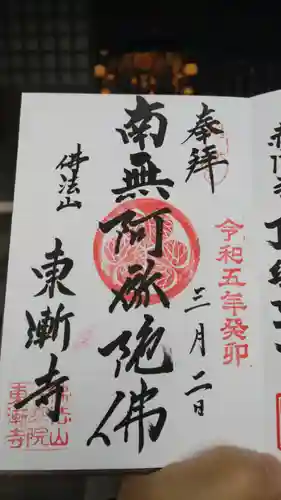 奉拝
令和五年癸卯
三月二日
南無阿弥陀佛
佛法山
東漸寺
佛法山
院
東漸寺